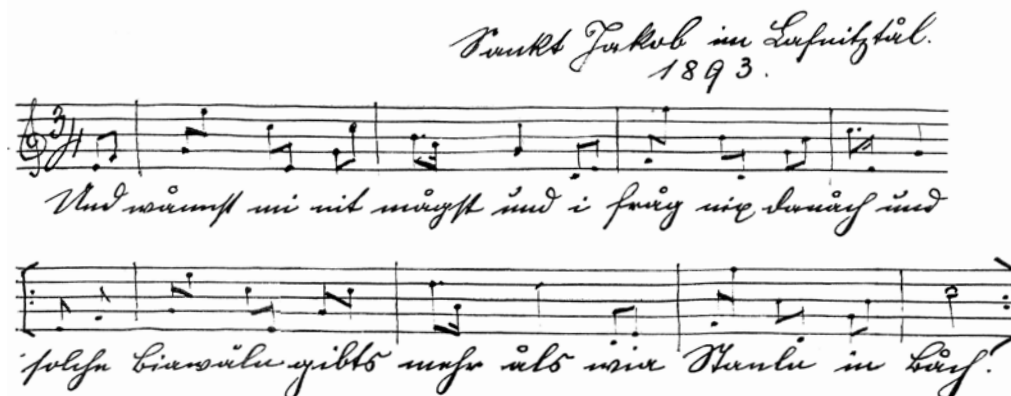 Sankt Jakob im Lafnitztål.
1893.
3/4
Und wånnst mi nit mågst und i fråg nix danåch und
solche Biawåln gibts mehr åls wia Stanln in Båch!